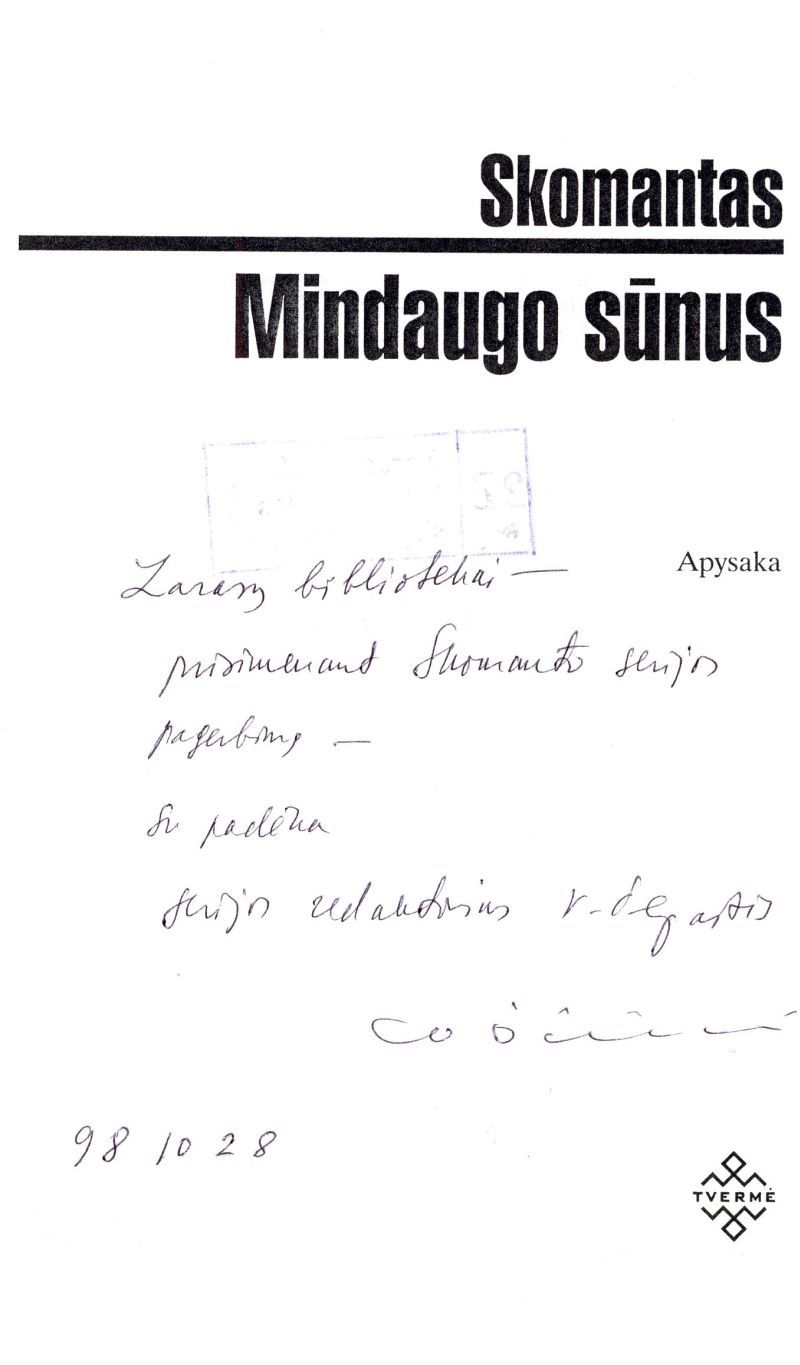 Skomantas
Mindaugo sūnus
Apysaka
Zarasų bibliotekai —
prisimenant Skomanto serijos
pagerbimą —
Su padėka
serijos redaktorius
98 10 28
TVERMĖ